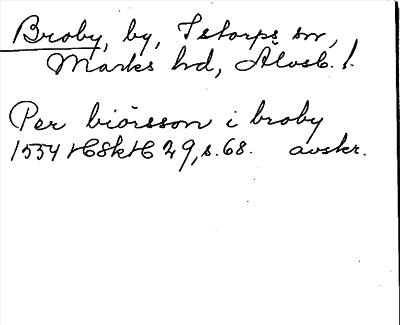 Broby, by, Istorps sn,
Marks hd, Älvsb. l.
Per biörsson i broby
1554 HSkH 29, s. 68. avskr.